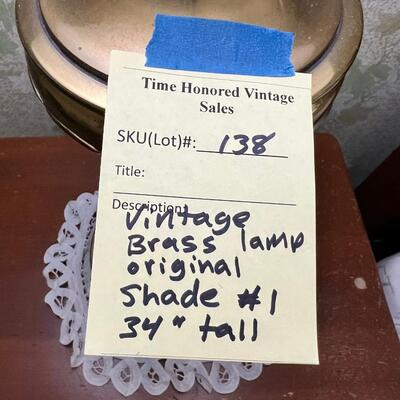 Time Honored Vintage
Sales
SKU(Lot)#: 138
Title:
Description:
Vintage
Brass lamp
original
Shade #1
34" tall